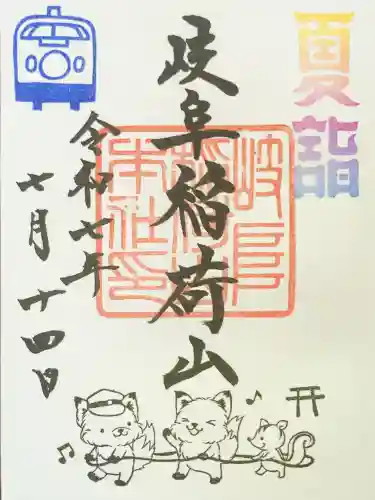 夏詣
岐阜稲荷山
令和七年
七月十四日
岐阜
稲荷山
本社印